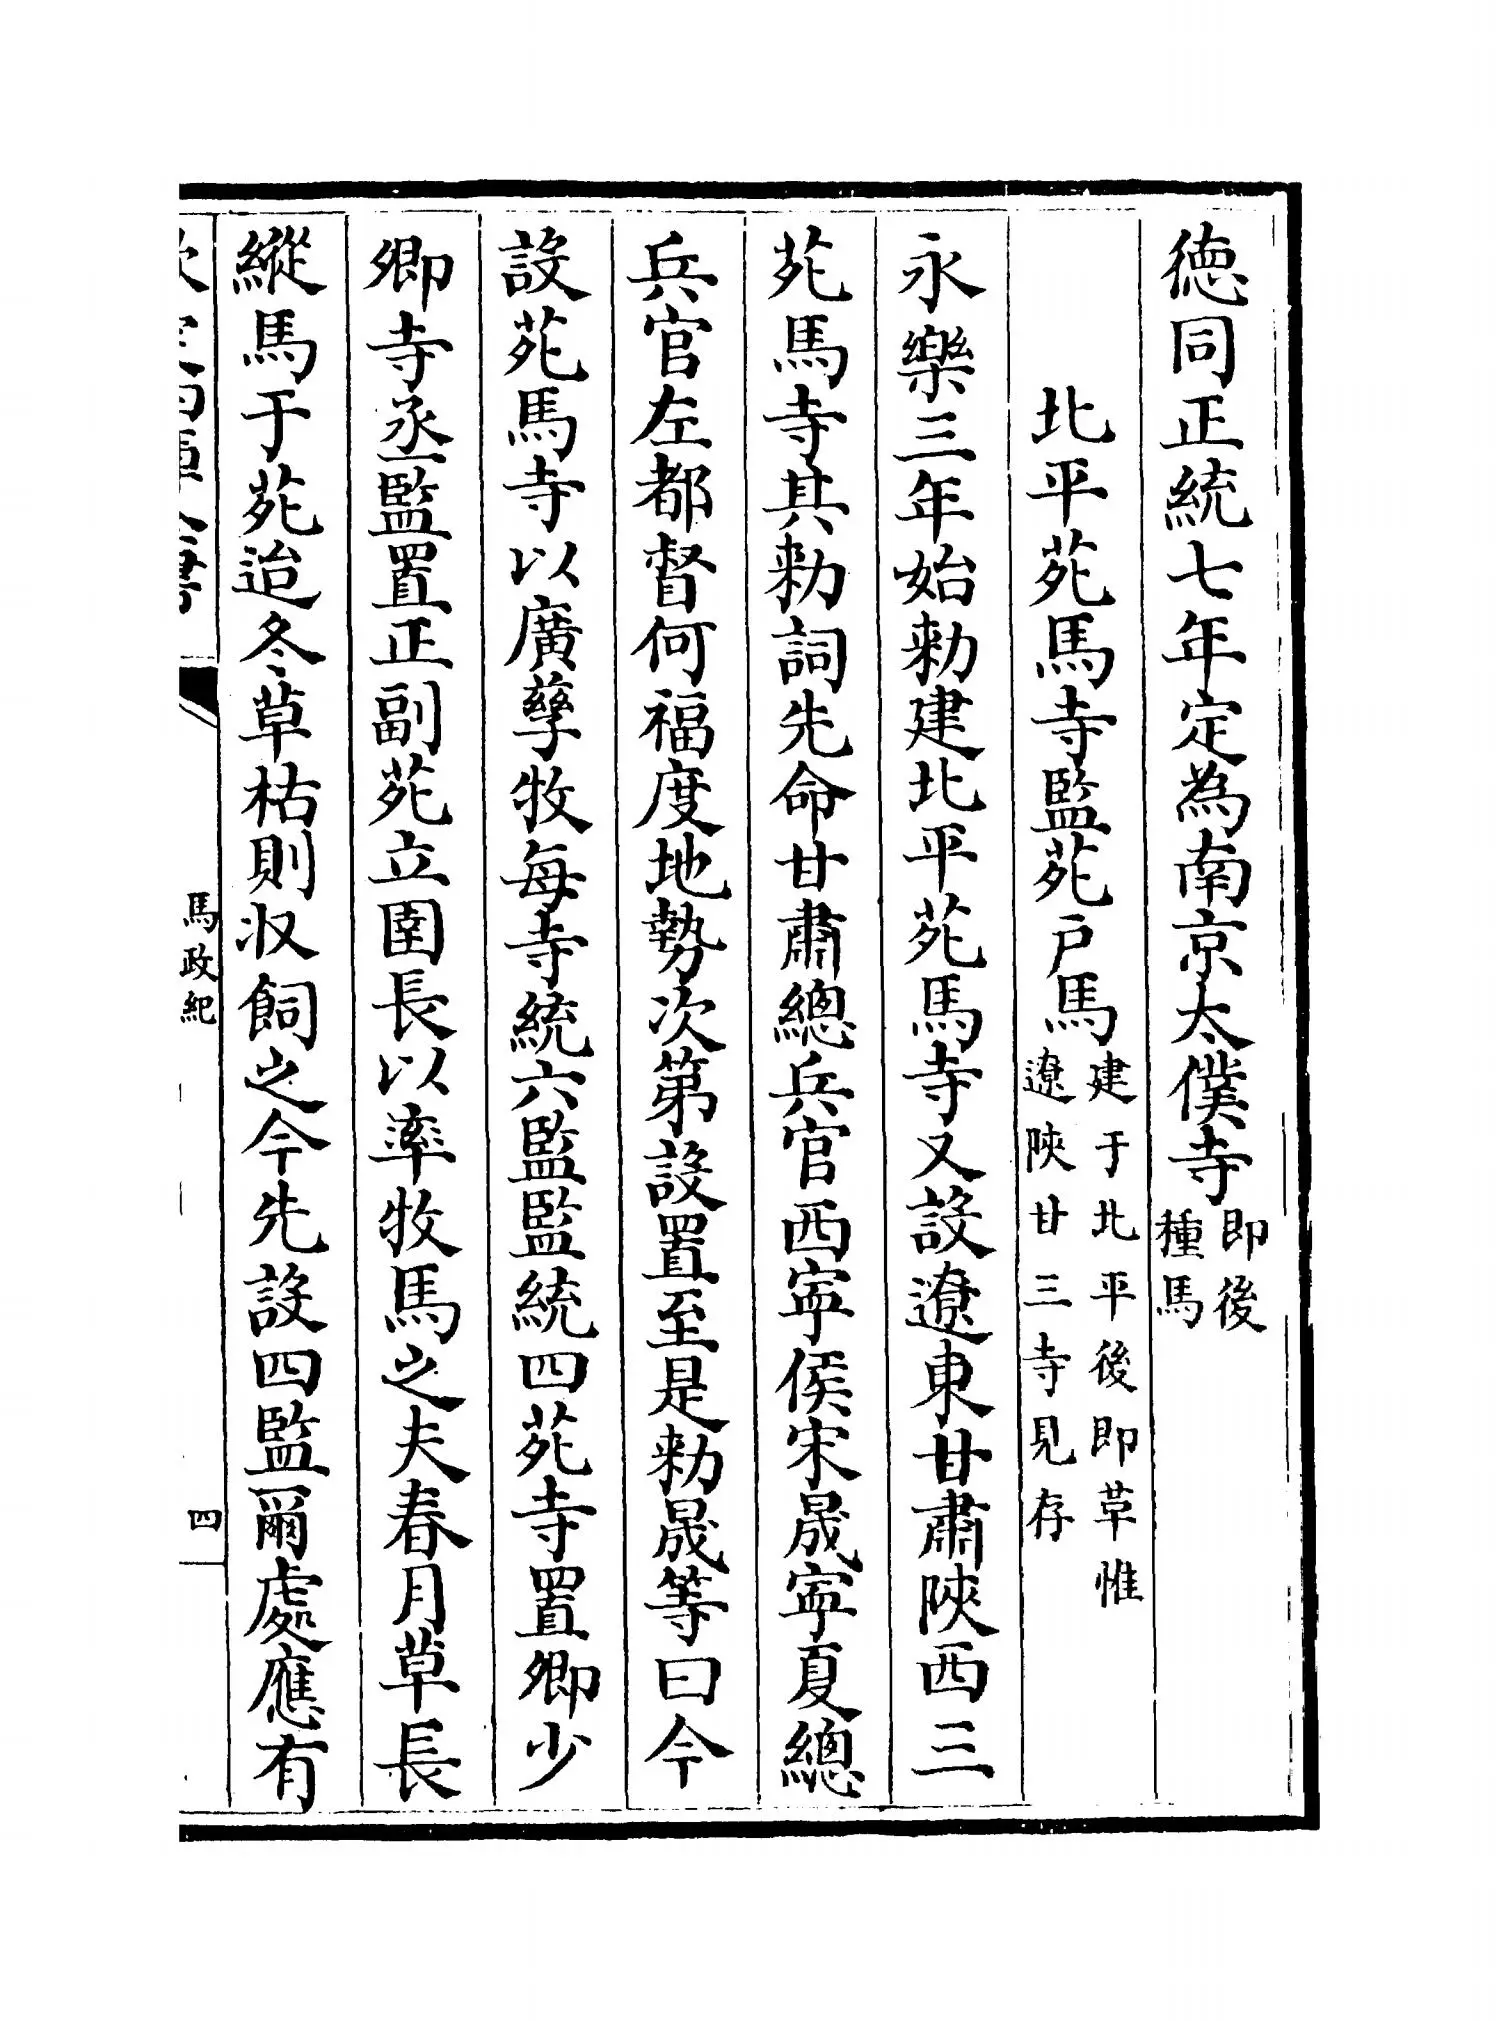 德同正統七年定為南京太僕寺即後種馬
北平苑馬寺監苑户馬建于北平後即革惟遼陜甘三寺見存
永樂三年始勅建北平苑馬寺又設遼東甘肅陜西三
苑馬寺其勅詞先命甘肅總兵官西寧侯宋晟寧夏總
兵官左都督何福度地勢次第設置至是勅晟等曰今
設苑馬寺以廣孳牧每寺統六監監統四苑寺置卿少
卿寺丞監置正副苑立圉長以率牧馬之夫春月草長
縱馬于苑迨冬草枯則収飼之今先設四監爾處應有
馬政紀
四